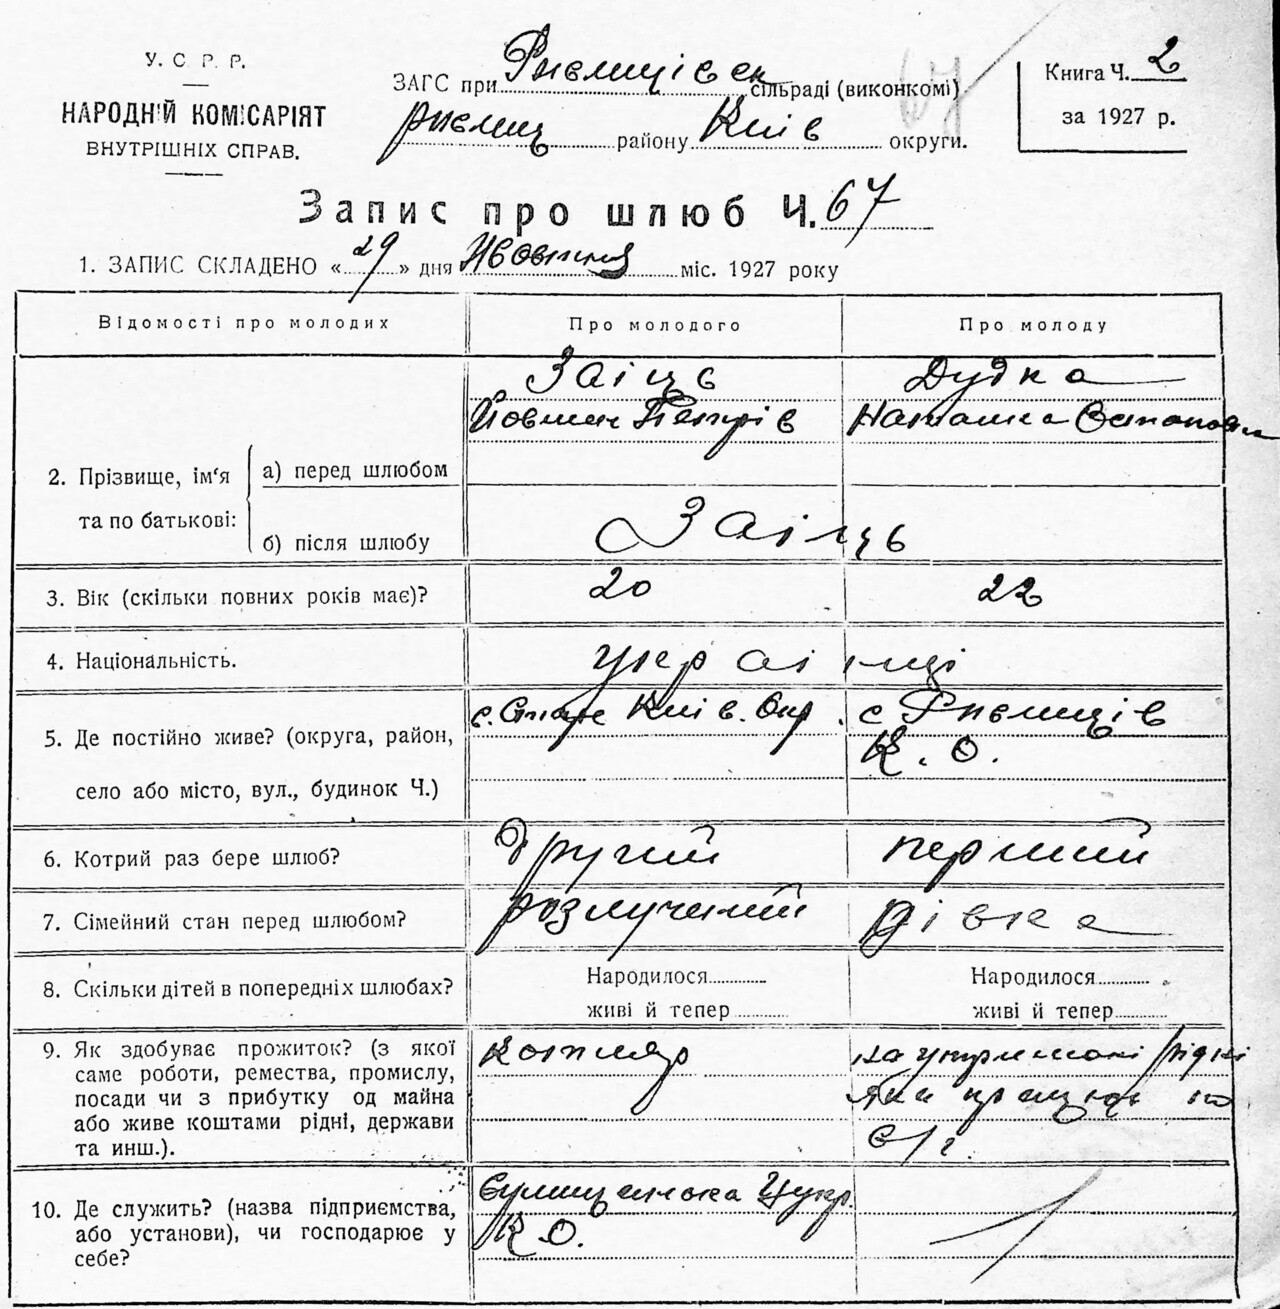 У. С. Р. Р.
НАРОДНІЙ КОМІСАРІЯТ
ВНУТРІШНІХ СПРАВ.
ЗАГС при Ржищівск сільраді (виконкомі)
Ржищ району Київ округи.
Книга Ч. 2
за 1927 р.
Запис про шлюб Ч. 67
1. ЗАПИС СКЛАДЕНО «29» дня Жовтня міс. 1927 року
Відомості про молодих
Про молодого
Про молоду
2. Прізвище, ім'я та по батькові:
а) перед шлюбом
Заіць
Петрів
Дудка
Наталка Остаповна
б) після шлюбу
Заіць
3. Вік (скільки повних років має)?
20
22
4. Національність.
украінці
5. Де постійно живе? (округа, район,
село або місто, вул., будинок Ч.)
с. Старе Київ. Окр.
с Ржищів
К. О.
6. Котрий раз бере шлюб?
Другий
перший
7. Сімейний стан перед шлюбом?
розлучений
дівка
8. Скільки дітей в попередніх шлюбах?
Народилося
живі й тепер
Народилося
живі й тепер
9. Як здобуває прожиток? (з якої
саме роботи, ремества, промислу,
посади чи з прибутку од майна
або живе коштами рідні, держави
та инш.).
Котляр
на утриманні рідні
яки працюють
с/г.
10. Де служить? (назва підприємства,
або установи), чи господарює у
себе?
Цукр.
К. О.